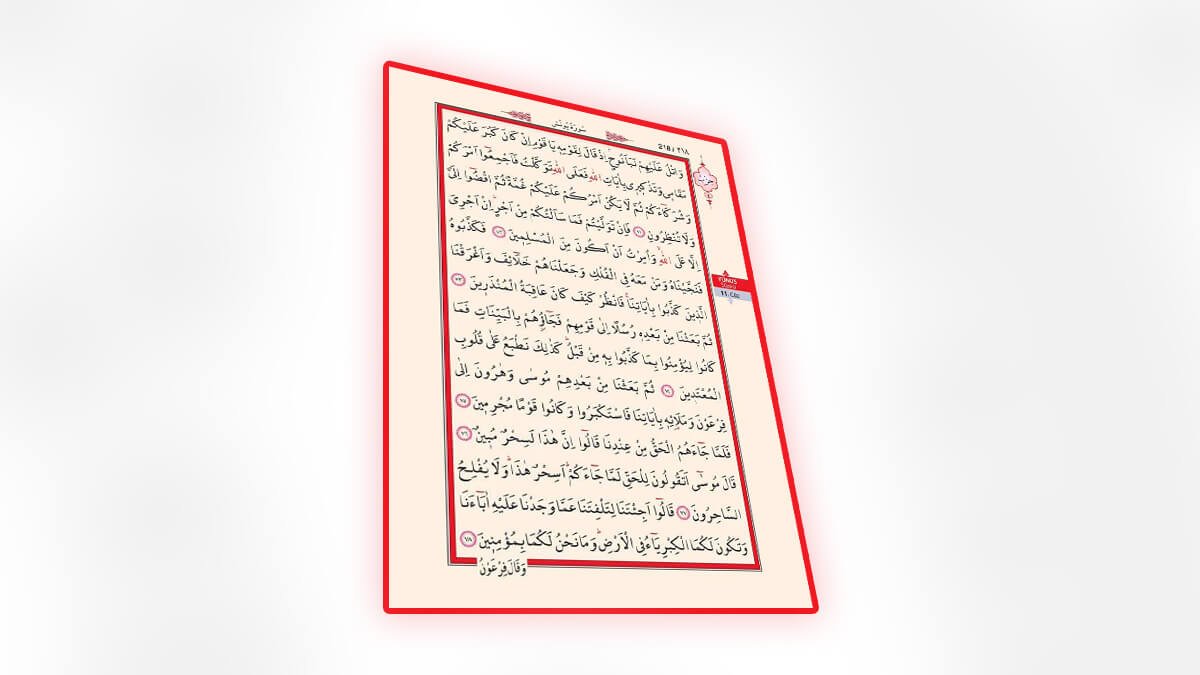 سُورَةُ يُونُسَ
218 / ٢١٨
وَاتْلُ عَلَيْهِمْ نَبَاَ نُوحٍۢ اِذْ قَالَ لِقَوْمِه۪ يَا قَوْمِ اِنْ كَانَ كَبُرَ عَلَيْكُمْ
مَقَام۪ي وَتَذْك۪ير۪ي بِاٰيَاتِ اللّٰهِ فَعَلَى اللّٰهِ تَوَكَّلْتُ فَاَجْمِعُٓوا اَمْرَكُمْ
وَشُرَكَٓاءَكُمْ ثُمَّ لَا يَكُنْ اَمْرُكُمْ عَلَيْكُمْ غُمَّةً ثُمَّ اقْضُٓوا اِلَيَّ
وَلَا تُنْظِرُونِ ﴿٧١﴾ فَاِنْ تَوَلَّيْتُمْ فَمَا سَاَلْتُكُمْ مِنْ اَجْرٍۜ اِنْ اَجْرِيَ
اِلَّا عَلَى اللّٰهِۙ وَاُمِرْتُ اَنْ اَكُونَ مِنَ الْمُسْلِم۪ينَ ﴿٧٢﴾ فَكَذَّبُوهُ
فَنَجَّيْنَاهُ وَمَنْ مَعَهُ فِي الْفُلْكِ وَجَعَلْنَاهُمْ خَلَٓائِفَ وَاَغْرَقْنَا
الَّذ۪ينَ كَذَّبُوا بِاٰيَاتِنَاۚ فَانْظُرْ كَيْفَ كَانَ عَاقِبَةُ الْمُنْذَر۪ينَ ﴿٧٣﴾
ثُمَّ بَعَثْنَا مِنْ بَعْدِه۪ رُسُلًا اِلٰى قَوْمِهِمْ فَجَٓاؤُ۫هُمْ بِالْبَيِّنَاتِ فَمَا
كَانُوا لِيُؤْمِنُوا بِمَا كَذَّبُوا بِه۪ مِنْ قَبْلُۜ كَذٰلِكَ نَطْبَعُ عَلٰى قُلُوبِ
الْمُعْتَد۪ينَ ﴿٧٤﴾ ثُمَّ بَعَثْنَا مِنْ بَعْدِهِمْ مُوسٰى وَهٰرُونَ اِلٰى
فِرْعَوْنَ وَمَلَا۬ئِه۪ بِاٰيَاتِنَا فَاسْتَكْبَرُوا وَكَانُوا قَوْمًا مُجْرِم۪ينَ ﴿٧٥﴾
فَلَمَّا جَٓاءَهُمُ الْحَقُّ مِنْ عِنْدِنَا قَالُٓوا اِنَّ هٰذَا لَسِحْرٌ مُب۪ينٌ ﴿٧٦﴾
قَالَ مُوسٰٓى اَتَقُولُونَ لِلْحَقِّ لَمَّا جَٓاءَكُمْۜ اَسِحْرٌ هٰذَاۜ وَلَا يُفْلِحُ
السَّاحِرُونَ ﴿٧٧﴾ قَالُٓوا اَجِئْتَنَا لِتَلْفِتَنَا عَمَّا وَجَدْنَا عَلَيْهِ اٰبَٓاءَنَا
وَتَكُونَ لَكُمَا الْكِبْرِيَٓاءُ فِي الْاَرْضِۜ وَمَا نَحْنُ لَكُمَا بِمُؤْمِن۪ينَ ﴿٧٨﴾
وَقَالَ فِرْعَوْنُ
YÛNUS
Sûresi
11. Cüz